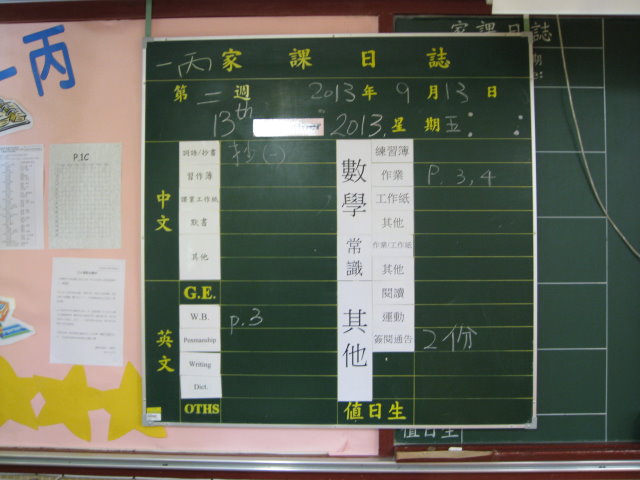 一丙
一丙 家課日誌
第 二 週 2013 年 9 月 13 日
13th 2013. 星期 五
中文
詞語/抄書 抄(一)
習作簿
課業工作紙
默書
其他
英文
G.E.
W.B. p.3
Penmanship
Writing
Dict.
OTHS
數學
練習簿
作業 P.3,4
工作紙
其他
常識
作業/工作紙
其他
其他
閱讀
運動
簽閱通告 2份
值日生
P.1C
家課日誌
值日生